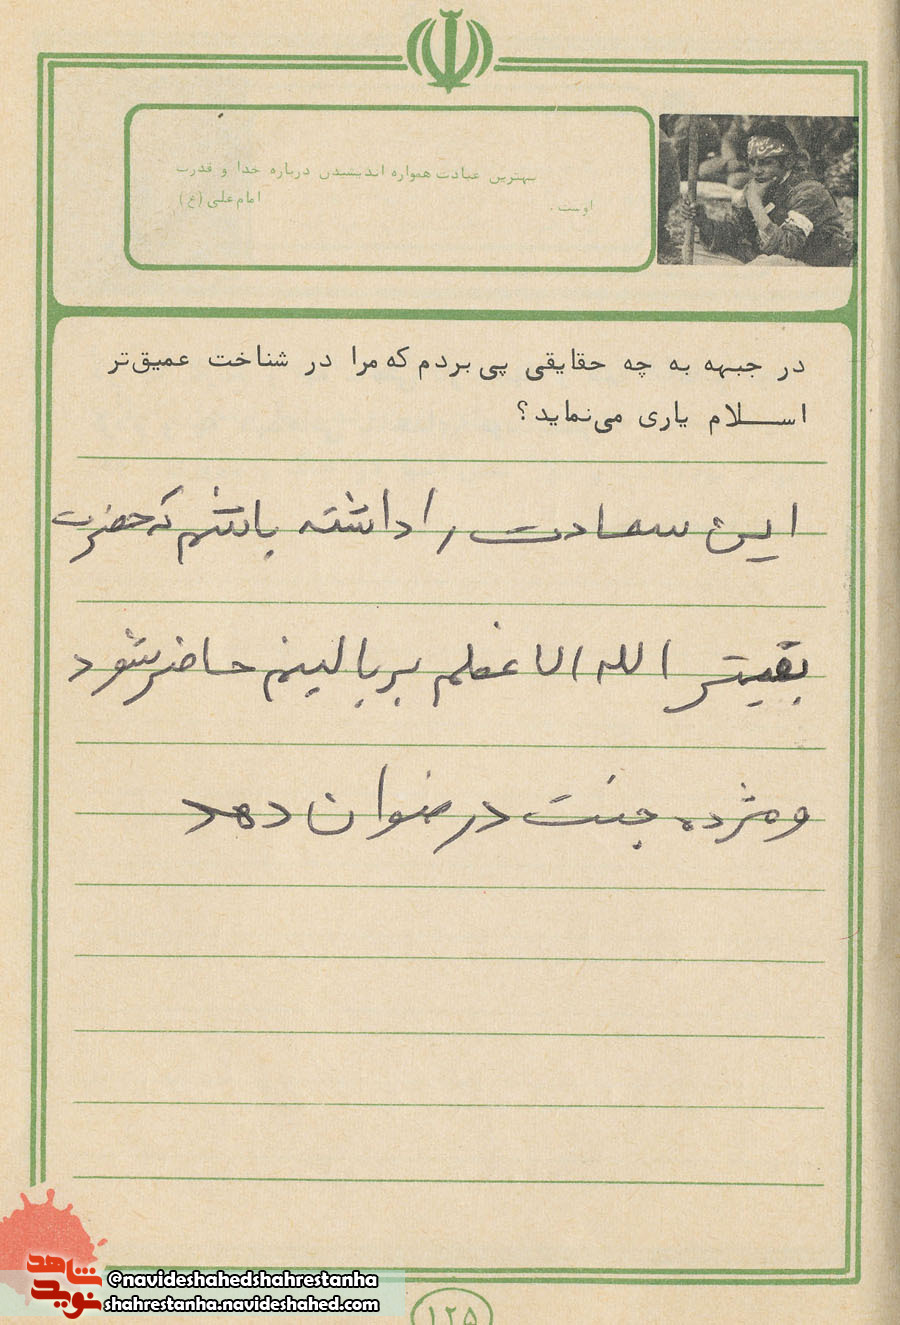 بهترین عبادت همواره اندیشیدن درباره خدا و قدرت
اوست . امام علی (ع)
در جبهه به چه حقایقی پی بردم که مرا در شناخت عمیق‌تر
اسلام یاری می‌نماید؟
این سعادت را داشته باشم که حضرت
بقیتر الله الاعظم بر بالینم حاضر شود
و مژده جنت در ضوان دهد
شاهد
نوید
@navideshahedshahrestanha
shahrestanha.navideshahed.com
۱۲۵